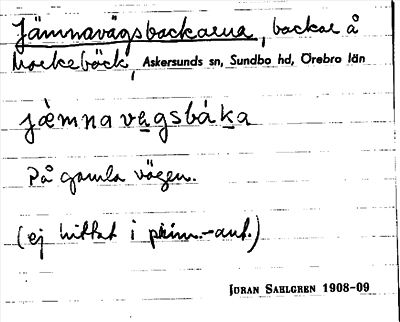 Jämnavägsbackarna, backar å
Norkebäck, Askersunds sn, Sundbo hd, Örebro län
jæmnavegsbáka
På gamla vägen.
(ej hittat i prim.-ant.)
JÖRAN SAHLGREN 1908-09